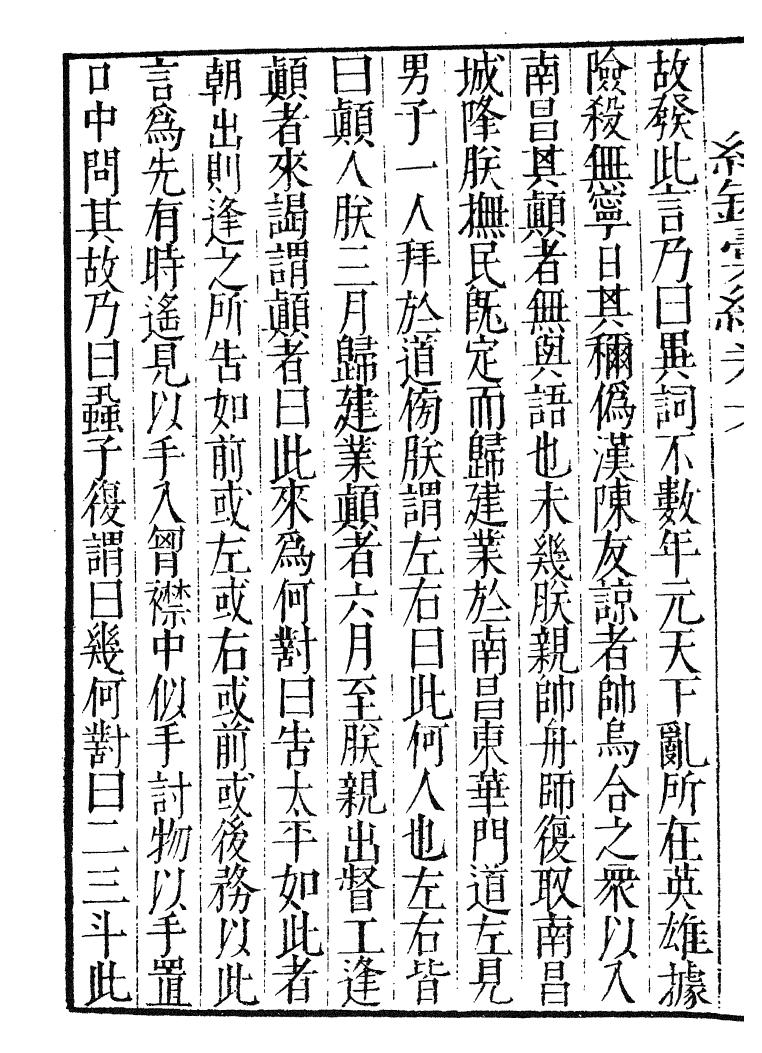 故發此言乃曰異詞不數年元天下亂所在英雄據
險殺無寧日其稱僞漢陳友諒者帥烏合之衆以入
南昌其顛者無與語也未幾朕親帥舟師復取南昌
城降朕撫民旣定而歸建業於南昌東華門道左見
男子一人拜於道傍朕謂左右曰此何人也左右皆
曰顛人朕三月歸建業顛者六月至朕親出督工逢
顛者來謁謂顛者曰此來爲何對曰告太平如此者
朝出則逢之所告如前或左或右或前或後務以此
言爲先有時遙見以手入胷襟中似手討物以手置
口中問其故乃曰蝨子復謂曰幾何對曰二三斗此